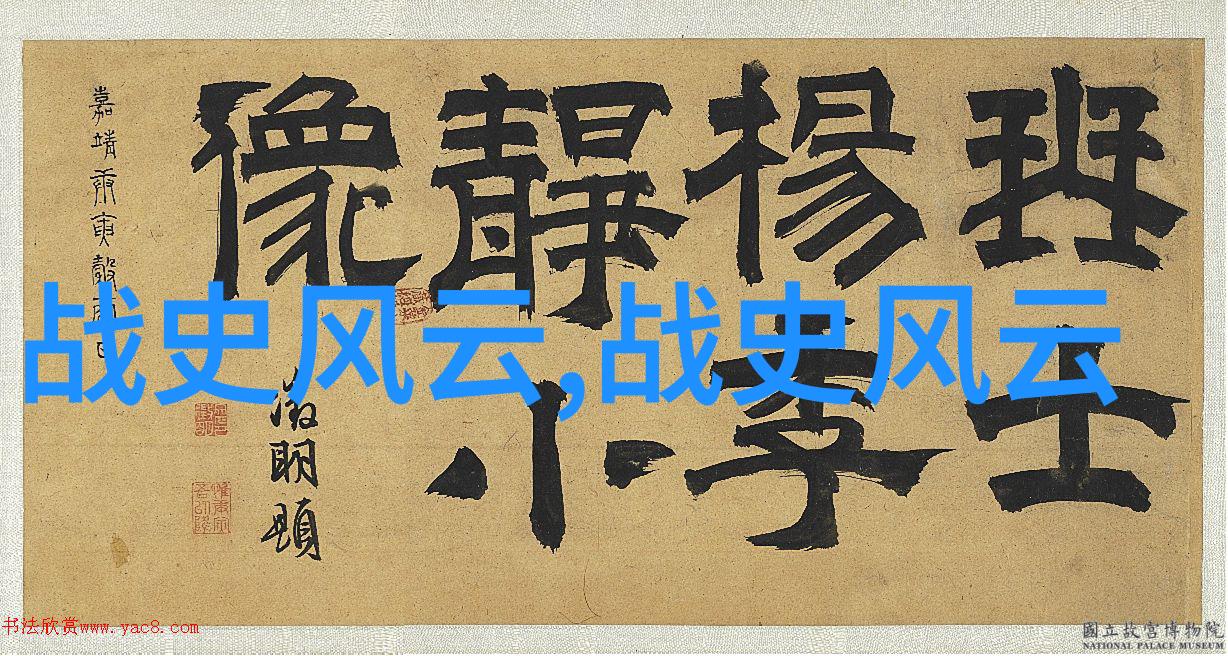 琴士
楊季
靜小
像
嘉靖庚寅穀雨日
徵明題
战史风云,战史风云
书法欣赏www.yac8.com
國立故宮博物院
NATIONAL PALACE MUSEUM